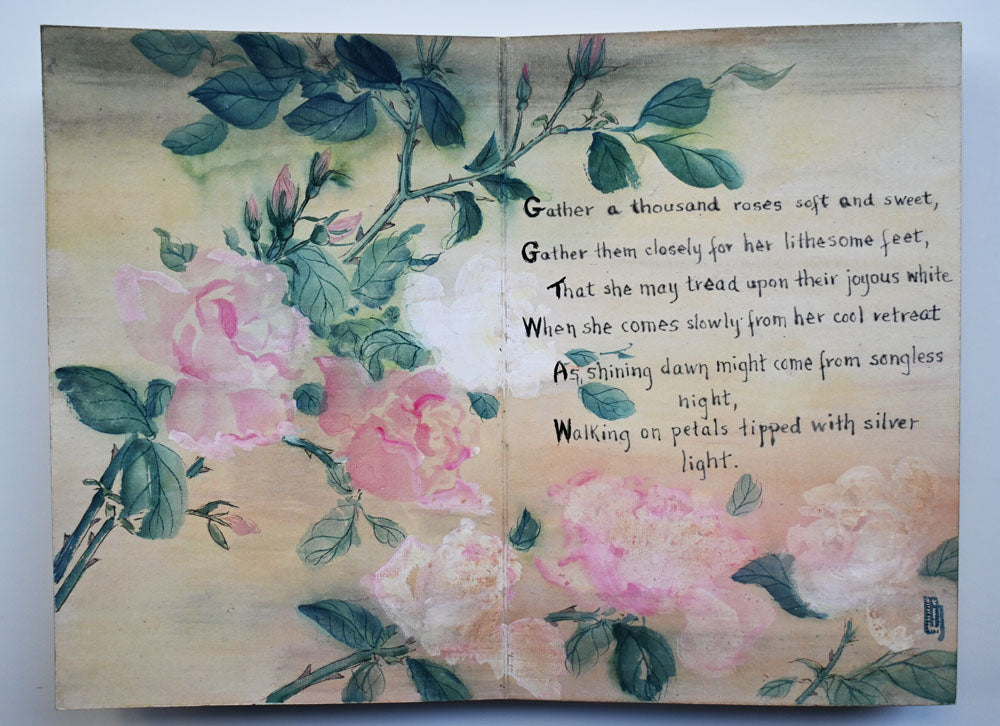 Gather a thousand roses soft and sweet,
Gather them closely for her lithesome feet,
That she may tread upon their joyous white
When she comes slowly from her cool retreat
As shining dawn might come from songless
night,
Walking on petals tipped with silver
light.